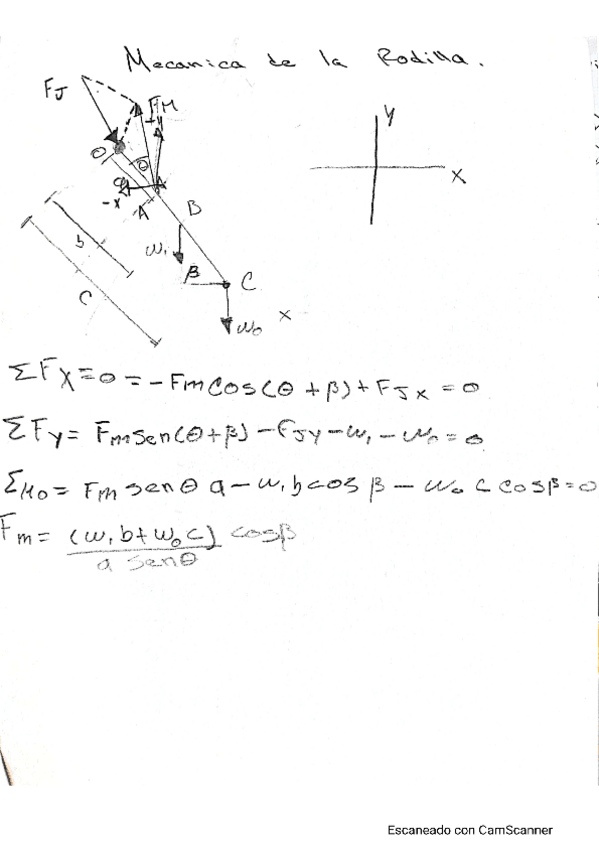 Mecanica de la Rodilla.
FJ
FM
Y
O
θ
a
-x
A
A
X
B
b
W₁
β
C
c
W₀
x
ΣFx=0=-FmCos(θ+β)+FJx=0
ΣFy=FmSen(θ+β)-FJy-W₁-W₀=0
ΣMo=Fm senθ a-W₁bcosβ-W₀ C cosβ=0
Fm=(W₁b+W₀C) cosβ
a senθ
Escaneado con CamScanner